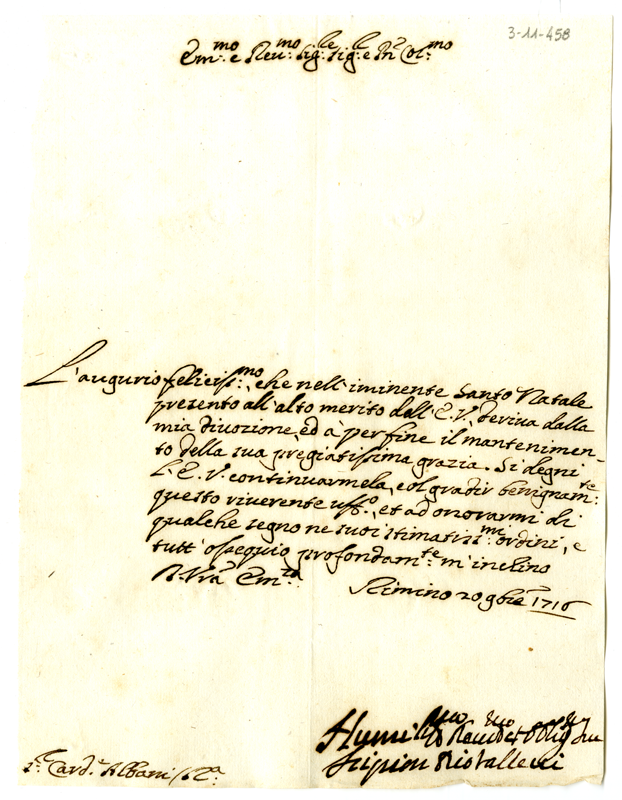 3-11-458
Em:mo e Reu:mo Sig:re Sig:e Pne Col:mo
L'augurio feliciss:mo, che nell'iminente Santo Natale
presento all'alto merito dell'E. V., deriva dalla
mia diuozione, ed à per fine il mantenimen-
to della sua pregiatissima grazia. Si degni
l'E. V. continuarmela, col gradir benignam:te
questo riuerente uff:o, et ad onorarmi di
qualche segno ne suoi stimatissi:mi ordini, e
tutt'ossequio profondam:te m'inchino
D. Vra Em:za
Rimino 20 9bre 1716
Humil:mo Deuo:mo et Obblig:mo Su
Scipion
Card:e Albani